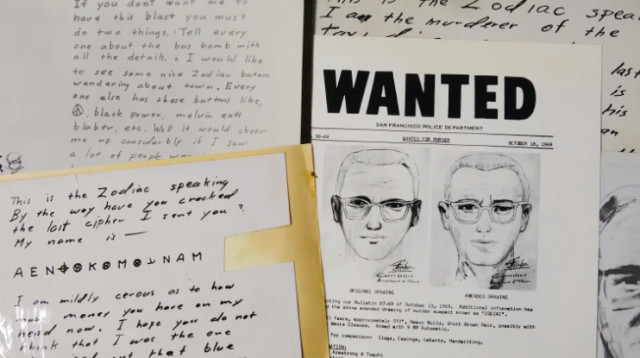 If you don't want me to
have this blast you must
do two things. Tell every
one about the bus bomb with
all the details. I would like
to see some nine Zodiac butons
wandering about town. Every
one else has these buttons like,
black power, melvin eats
blubber, etc. Well it would cheer
me up considerbly if I saw
a lot of people
This is the Zodiac speaking
By the way have you cracked
the last cipher I sent you?
My name is —
AEN⊕⊗K⊗M⊗⅃NAM
I am mildly cerous as to how
much money you have on my
head now. I hope you do not
think that I was the one
that blue
This is the Zodiac
I am the murderer of the
last
is
his
WANTED
SAN FRANCISCO POLICE DEPARTMENT
90-69
WANTED FOR MURDER
OCTOBER 18, 1969
ORIGINAL DRAWING
AMENDED DRAWING
our Bulletin 87-69 of October 13, 1969. Additional information has
the above amended drawing of murder suspect known as "ZODIAC".
Years, approximately Heavy Build, Short Brown Hair, possibly with
Glasses. Armed with 9 MM Automatic.
for comparison: Slugs, Casings, Latents, Handwriting.
Armstrong & Toschi